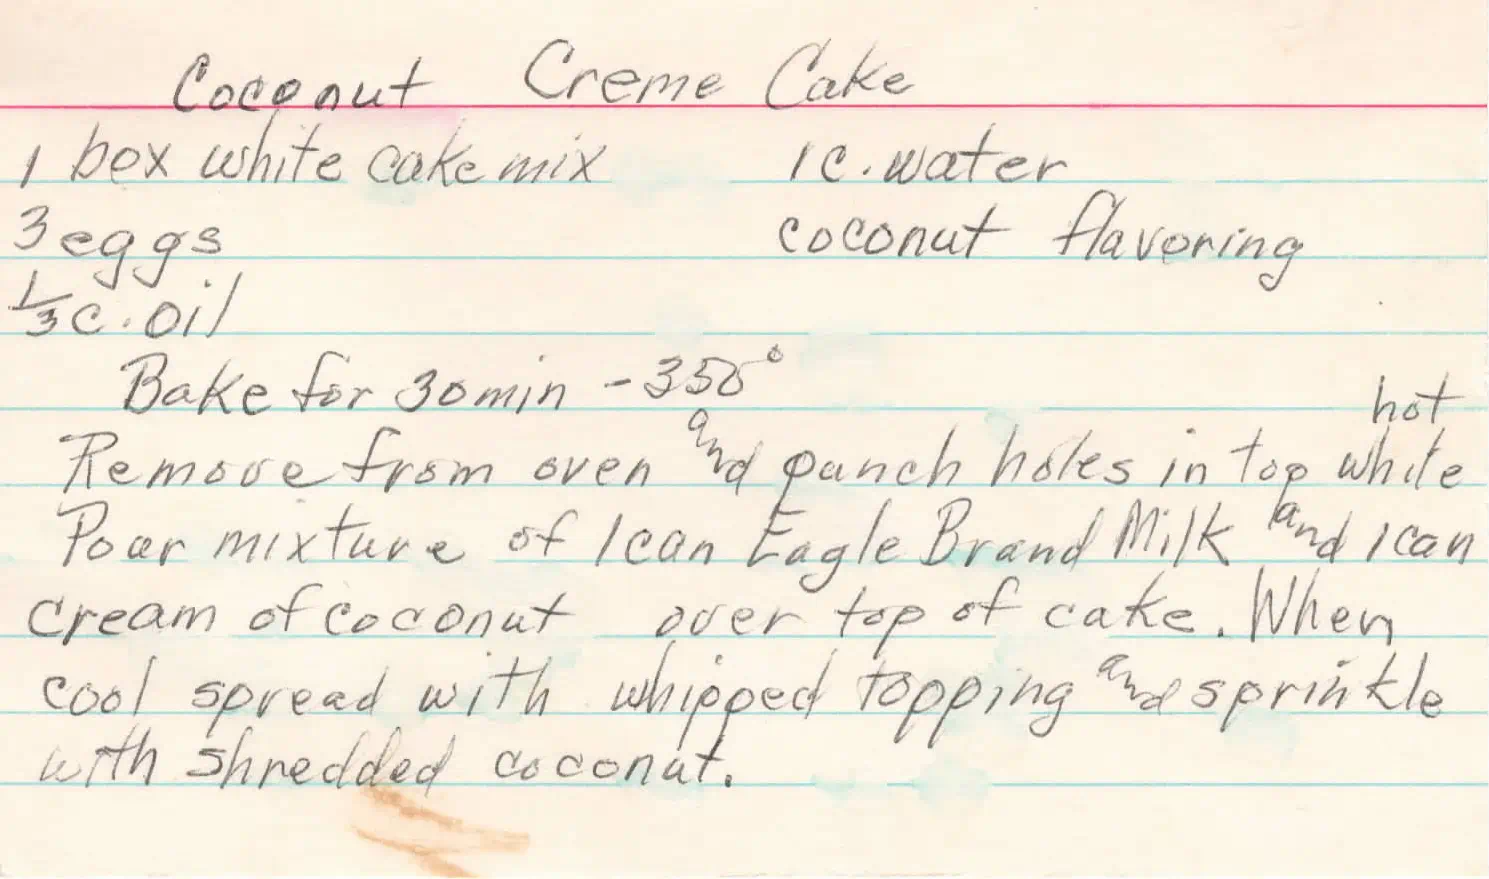 Coconut Creme Cake
1 box white cake mix 1 c. water
3 eggs coconut flavoring
1/3 c. oil
Bake for 30 min - 350°
hot
Remove from oven and punch holes in top while
Pour mixture of 1 can Eagle Brand Milk and 1 can
cream of coconut over top of cake. When
cool spread with whipped topping and sprinkle
with shredded coconut.